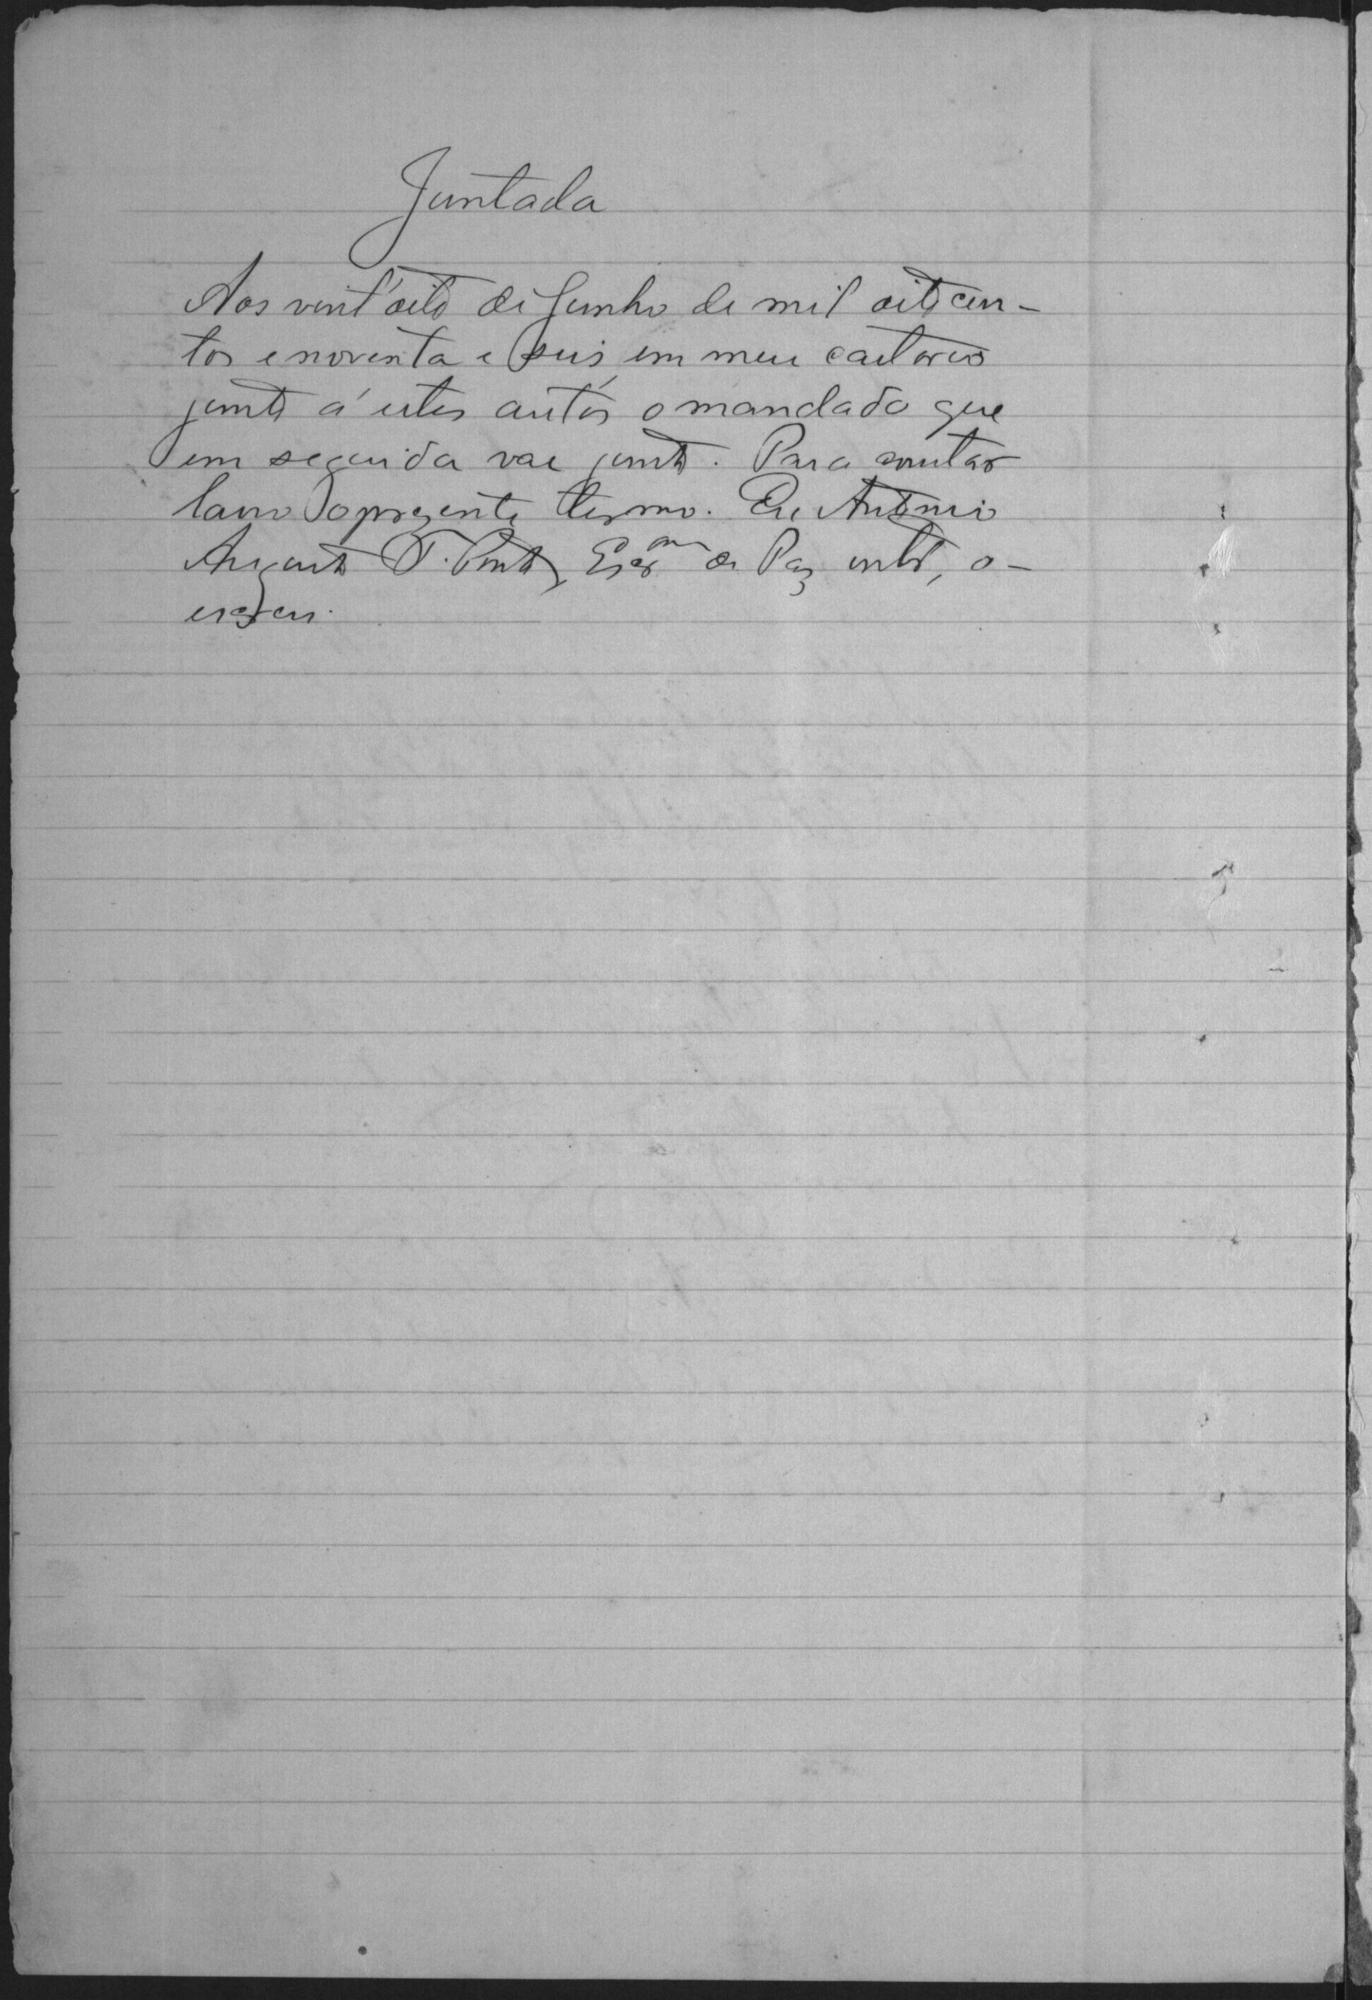 Juntada
Aos vint'oito de Junho de mil oitocen-
tos e noventa e seis, em meu cartorio
junto á estes autos o mandado que
em seguida vae junto. Para constar
lavro o presente termo. Eu Antonio
Augusto T. Pinto, Escr.am de Paz int.o, o-
escrevi.